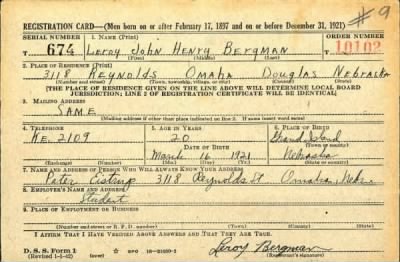 # 9
REGISTRATION CARD—(Men born on or after February 17, 1897 and on or before December 31, 1921)
SERIAL NUMBER 1. NAME (Print) ORDER NUMBER
T 674 Leroy John Henry Bergman 10102
(First) (Middle) (Last)
2. PLACE OF RESIDENCE (Print)
3118 Reynolds Omaha Douglas Nebraska
(Number and street) (Town, township, village, or city) (County) (State)
[THE PLACE OF RESIDENCE GIVEN ON THE LINE ABOVE WILL DETERMINE LOCAL BOARD
JURISDICTION; LINE 2 OF REGISTRATION CERTIFICATE WILL BE IDENTICAL]
3. MAILING ADDRESS
SAME
[Mailing address if other than place indicated on line 2. If same insert word same]
4. TELEPHONE 5. AGE IN YEARS 6. PLACE OF BIRTH
KE. 2109 20 Grand Island
DATE OF BIRTH (Town or county)
March 16 1921 Nebraska
(Exchange) (Number) (Mo.) (Day) (Yr.) (State or country)
7. NAME AND ADDRESS OF PERSON WHO WILL ALWAYS KNOW YOUR ADDRESS
Peter 3118 Reynolds St. Omaha, Nebr.
8. EMPLOYER'S NAME AND ADDRESS
Student
9. PLACE OF EMPLOYMENT OR BUSINESS
(Number and street or R. F. D. number) (Town) (County) (State)
I AFFIRM THAT I HAVE VERIFIED ABOVE ANSWERS AND THAT THEY ARE TRUE.
D. S. S. Form 1
(Revised 1-1-42) (over) GPO 16—21630-2 Leroy Bergman
(Registrant's signature)